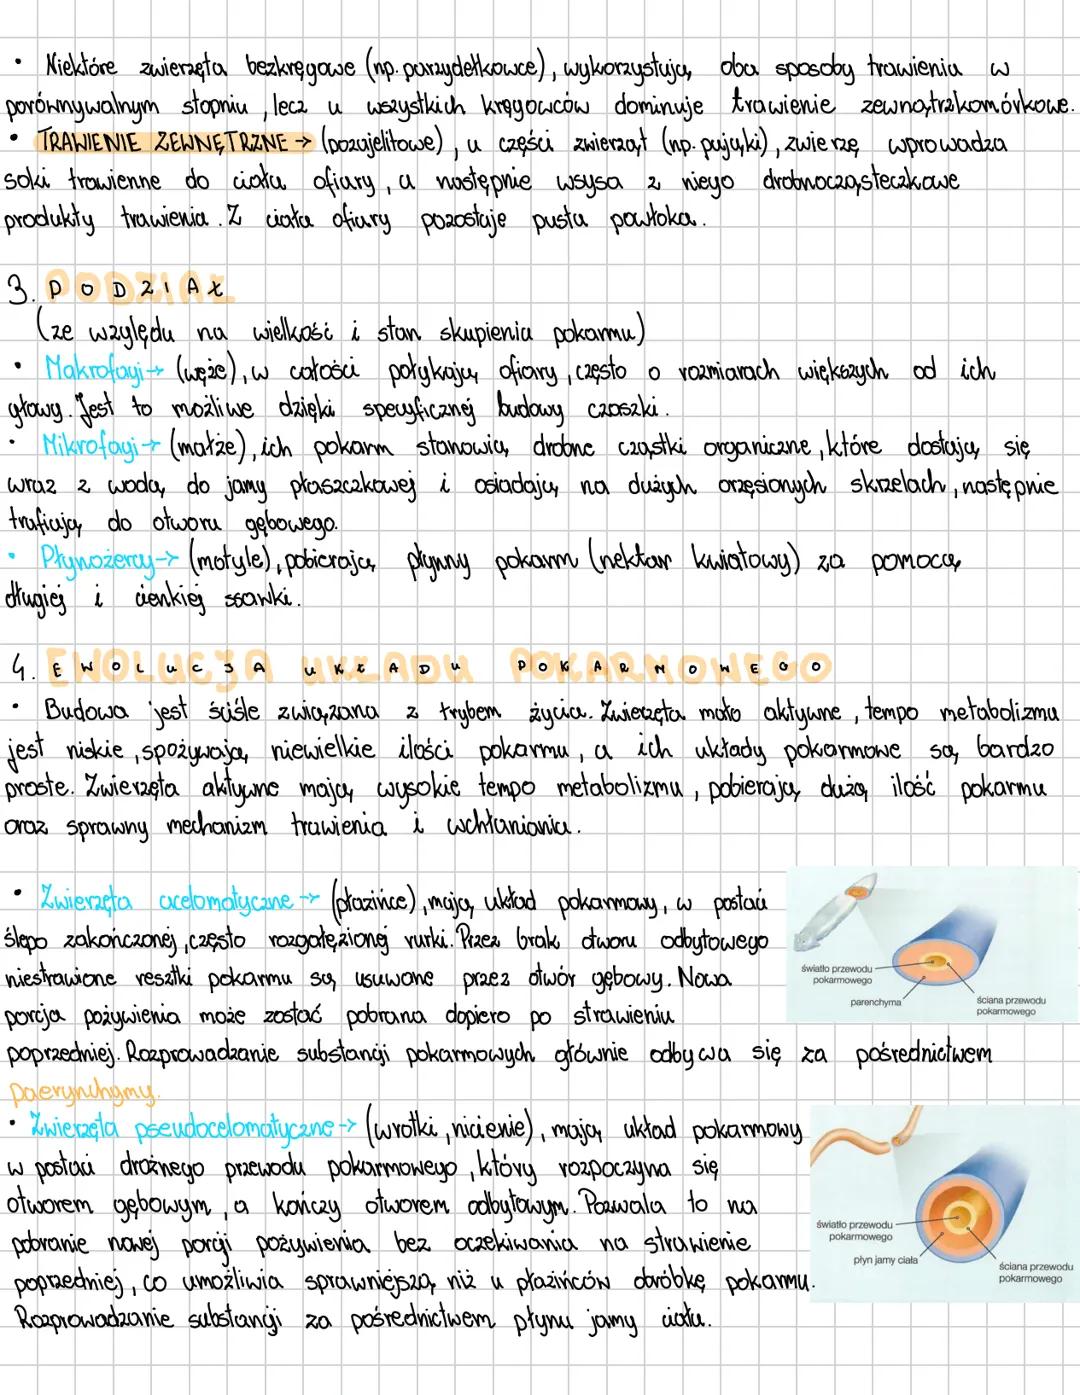 • Niektóre zwierzęta bezkręgowe (np. parzydełkowce), wykorzystują oba sposoby trawienia w
porównywalnym stopniu, lecz u wszystkich kręgowców dominuje trawienie zewnątrzkomórkowe.
• TRAWIENIE ZEWNĘTRZNE → (pozajelitowe), u części zwierząt (np. pająki), zwierzę wprowadza
soki trawienne do ciała ofiary, a następnie wsysa z niego drobnocząsteczkowe
produkty trawienia. Z ciała ofiary pozostaje pusta powłoka.
3. PODZIAŁ
(ze względu na wielkość i stan skupienia pokarmu)
• Makrofagi → (węże), w całości połykają ofiary, często o rozmiarach większych od ich
głowy. Jest to możliwe dzięki specyficznej budowy czaszki.
• Mikrofagi → (małże), ich pokarm stanowią drobne cząstki organiczne, które dostają się
wraz z wodą do jamy płaszczkowej i osiadają na dużych orzęsionych skrzelach, następnie
trafiają do otworu gębowego.
• Płynożercy → (motyle), pobierają płynny pokarm (nektar kwiatowy) za pomocą
długiej i cienkiej ssawki.
4. EWOLUCJA UKŁADU POKARMOWEGO
• Budowa jest ściśle związana z trybem życia. Zwierzęta mało aktywne, tempo metabolizmu
jest niskie, spożywają niewielkie ilości pokarmu, a ich układy pokarmowe są bardzo
proste. Zwierzęta aktywne mają wysokie tempo metabolizmu, pobierają dużą ilość pokarmu
oraz sprawny mechanizm trawienia i wchłaniania.
• Zwierzęta acelomatyczne → (płazińce), mają układ pokarmowy, w postaci
ślepo zakończonej, często rozgałęzionej rurki. Przez brak otworu odbytowego
niestrawione resztki pokarmu są usuwane przez otwór gębowy. Nowa
porcja pożywienia może zostać pobrana dopiero po strawieniu
poprzedniej. Rozprowadzanie substancji pokarmowych głównie odbywa się za pośrednictwem
paerynchymy.
światło przewodu
pokarmowego
parenchyma
ściana przewodu
pokarmowego
• Zwierzęta pseudocelomatyczne → (wrotki, nicienie), mają układ pokarmowy
w postaci drożnego przewodu pokarmowego, który rozpoczyna się
otworem gębowym, a kończy otworem odbytowym. Pozwala to na
pobranie nowej porcji pożywienia bez oczekiwania na strawienie
poprzedniej, co umożliwia sprawniejszą niż u płazińców obróbkę pokarmu.
Rozprowadzanie substancji za pośrednictwem płynu jamy ciału.
światło przewodu
pokarmowego
płyn jamy ciała
ściana przewodu
pokarmowego